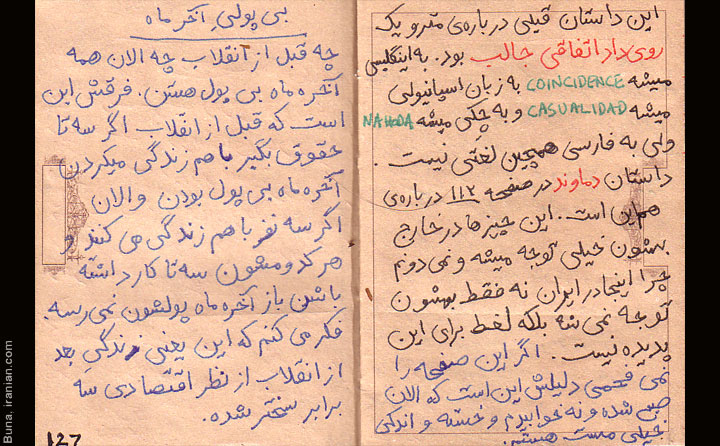 این داستان قبلی درباره‌ی مترو یک
روی‌داد اتفاقی جالب بود. به اینگلیسی
میشه COINCIDENCE به زبان اسپانیولی
میشه CASUALIDAD و به چکی میشه NAHODA
ولی به فارسی همچین لغتی نیست.
داستان دماوند در صفحه ۱۱۲ درباره‌ی
همین است. این چیزها در خارج
بهشون خیلی توجه میشه و نمی دونم
چرا اینجا در ایران نه فقط بهشون
توجه نمی شه بلکه لغط برای این
پدیده نیست. اگر این صفحه را
نمی فهمی دلیلش این است که الان
صبح شده و نه خوابیدم و خسته و اندکی
خیلی مست
بی پولیِ آخر ماه
چه قبل از انقلاب چه الان همه
آخره ماه بی پول هستن. فرقش این
است که قبل از انقلاب اگر سه تا
حقوق بگیر با هم زندگی میکردن
آخره ماه بی پول بودن و الان
اگر سه نفر با هم زندگی می کنند و
هر کدومشون سه تا کار داشته
باشن باز آخره ماه پولشون نمی رسه.
فکر می کنم که این یعنی زندگیِ بعد
از انقلاب از نظر اقتصادی سه
برابر سختر شده.
127
Buna, iranian.com